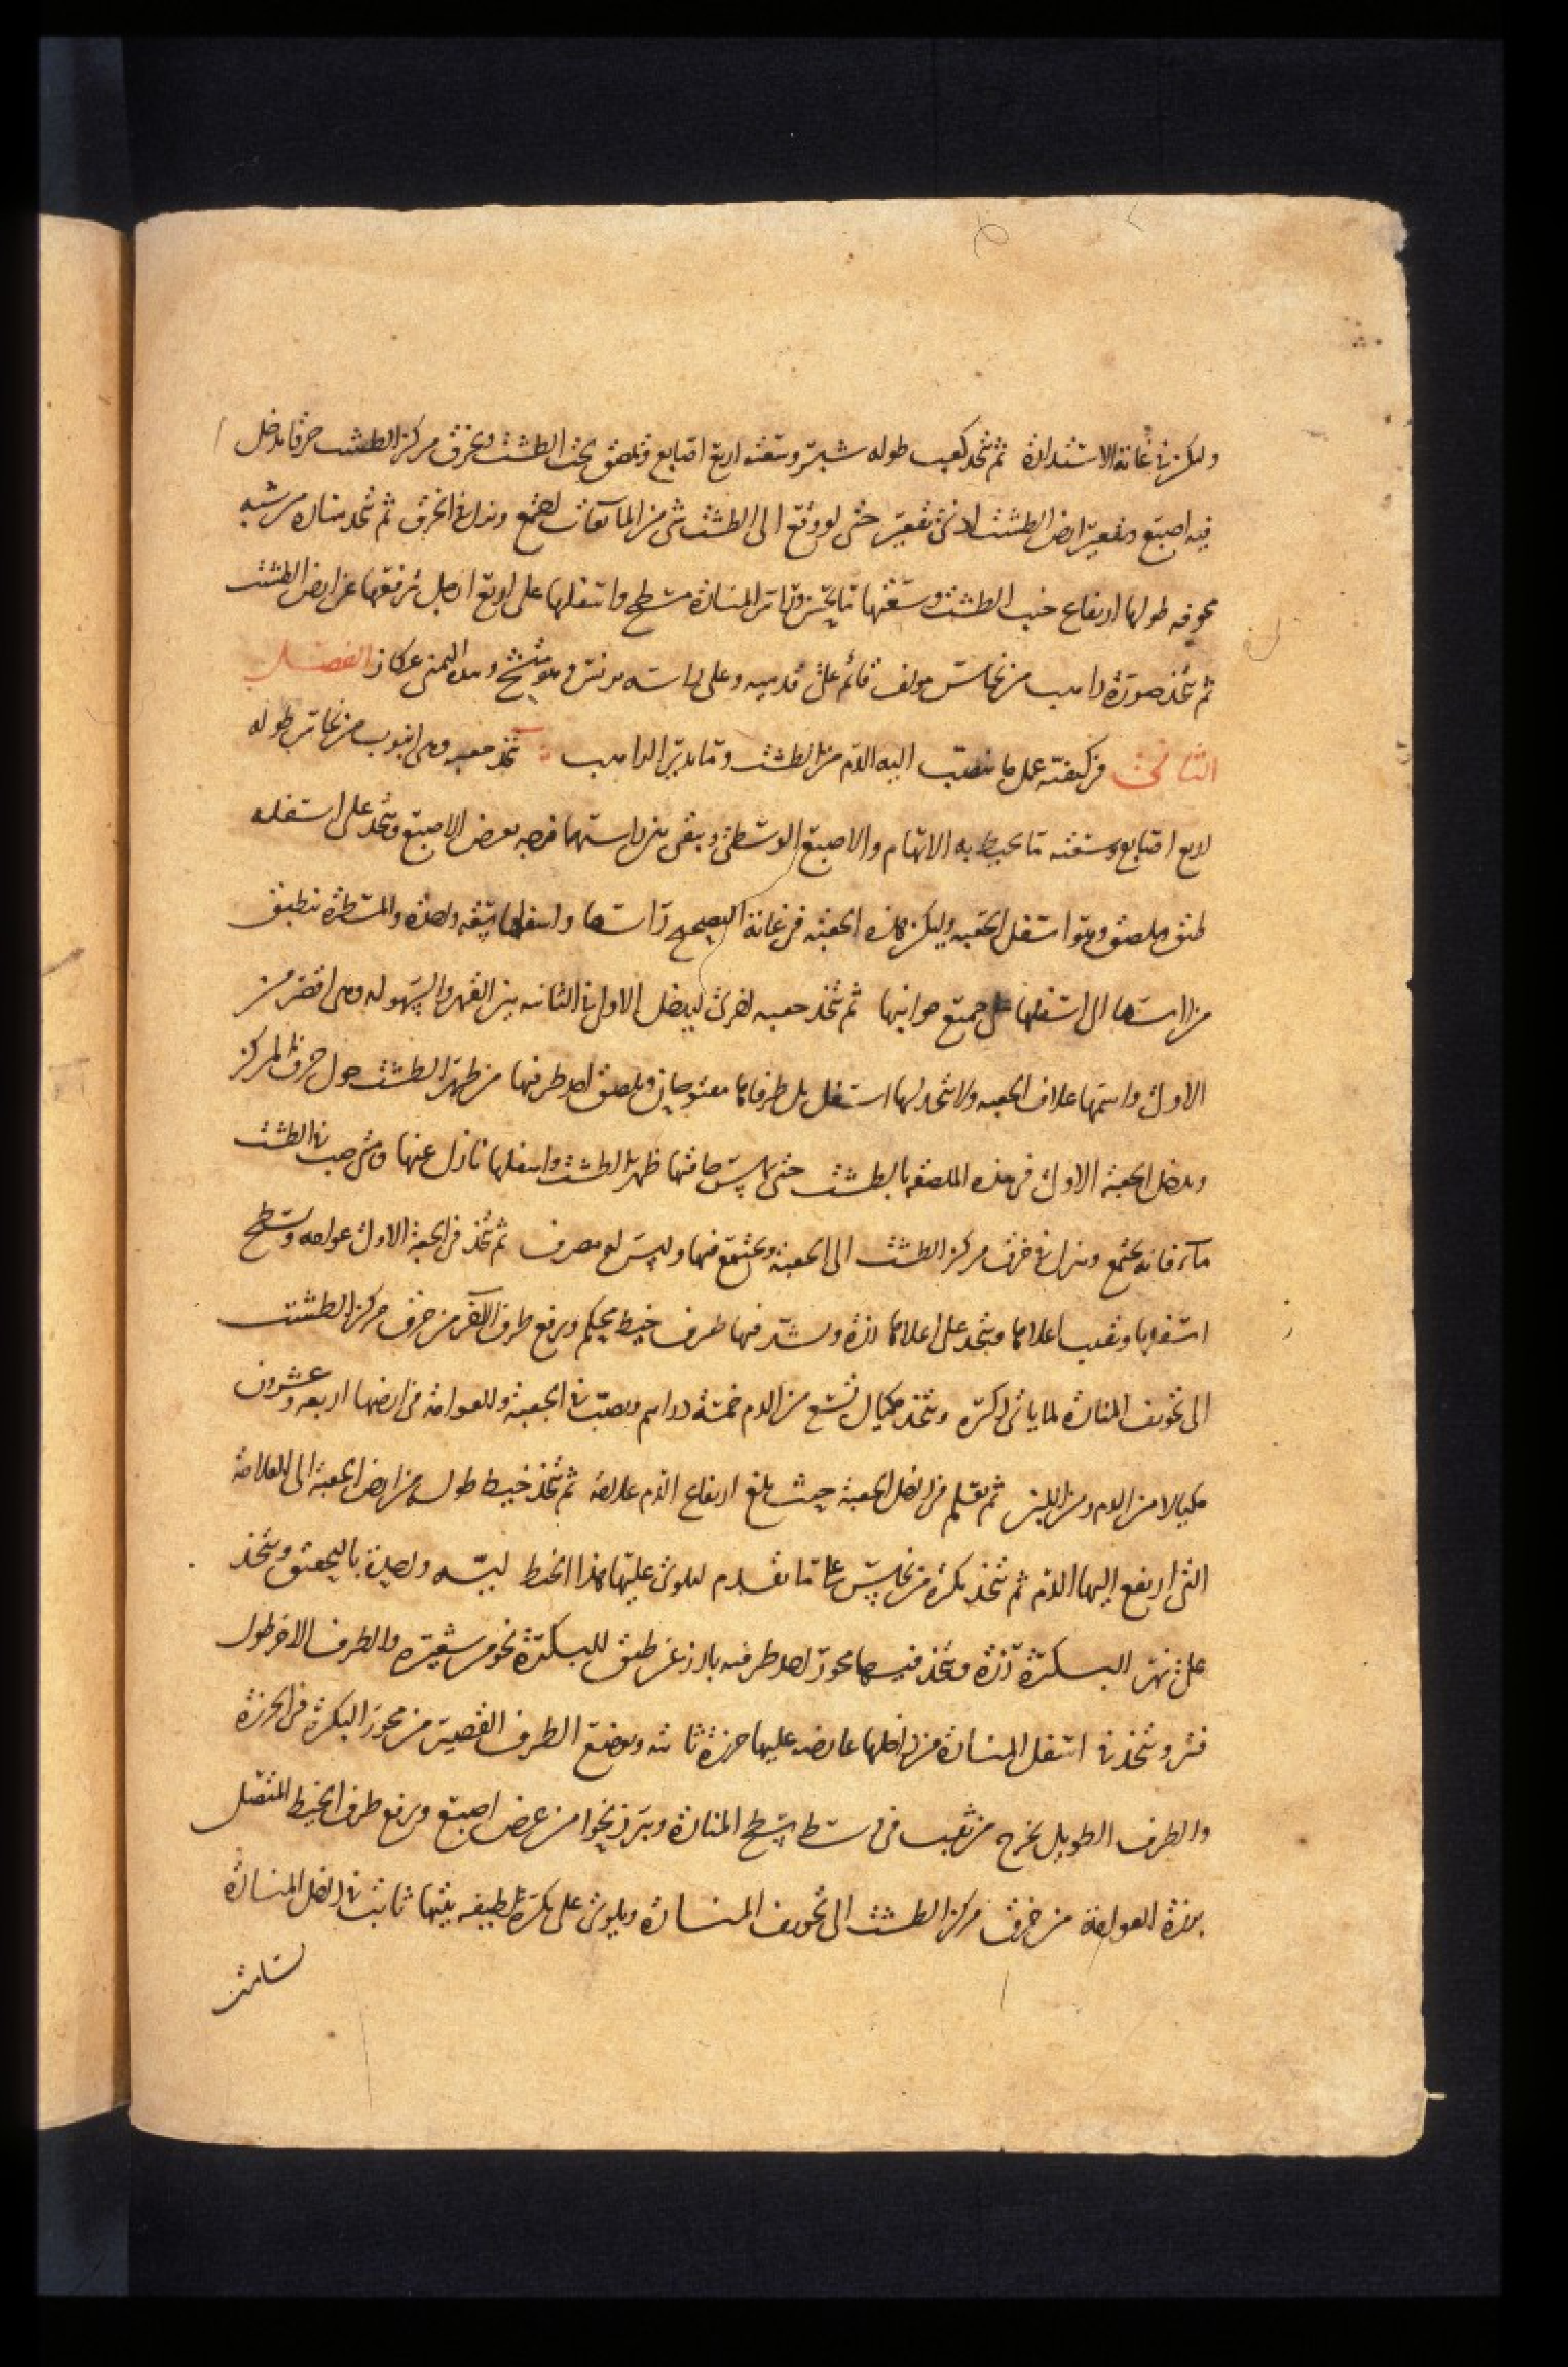 وليكن في غاية الاستدارة ثم يتخذ كعب طوله شبر وسعته اربع اصابع ويلصق تحت الطشت ويخرق مركز الطشت خرقا يدخل
فيه اصبع ويقعر ارض الطشت ادنى تقعير حتى لو وقع الى الطشت شى من المآيعات لاجتمع ونزل في الخرق ثم يتخذ منارة من شبه
مجوفه طولها ارتفاع جنب الطشت وسعتها ما يحسن وراس المنارة مسطح واسفلها على اربع ارجل ترفعها عن ارض الطشت
ثم يتخذ صورة راهب من نحاس مولف قائم على قدميه وعلى راسه برنس وهو متشح وبيده اليمنى عكاز الفصل
الثاني في كيفية عمل ما ينصب اليه الدم من الطشت وما يدير الراهب يتخذ جعبه وهى انبوب من نحاس طوله
اربع اصابع وسعته ما يحيط به الابهام والاصبع الوسطى ويبقى بين راسيهما فرجه بعرض الاصبع ويتخذ على اسفله
طبق ويلصق وهو اسفل الجعبه وليكن هذه الجعبة في غاية الصحه راسها واسفلها سعه واحدة والمسطرة تنطبق
من راسها الى اسفلها على جميع جوانبها ثم يتخذ جعبه اخرى ليدخل الاولى في الثانيه بين القهر والسهوله وهى اقصر من
الاولى واسمها غلاف الجعبه ولا يتخذ لها اسفل بل طرفاها مفتوحان ويلصق احد طرفيها من ظهر الطشت حول خرق المركز
ويدخل الجعبة الاولى في هذه الملصقة بالطشت حتى يماس حافتها ظهر الطشت واسفلها نازل عنها ومتى صب في الطشت
مآء فانه يجتمع وينزل في خرق مركز الطشت الى الجعبة ويجتمع فيها وليس له مصرف ثم يتخذ في الجعبة الاولى عوامه ويسطح
اسفلها ويقبب اعلاها ويتخذ على اعلاها رزة ويشد فيها طرف خيط محكم ويرفع طرف الآخر من خرق مركز الطشت
الى تجويف المنارة لما ياتى ذكره ويتخذ مكيال يسع من الدم خمسة دراهم ويصب في الجعبة والعوامة في ارضها اربعه وعشرون
مكيالا من الدم ومن اللبن ثم يعلم في داخل الجعبة حيث بلغ ارتفاع الدم علامة ثم يتخذ خيط طوله من ارض الجعبة الى العلامة
التى ارتفع اليها الدم ثم يتخذ بكرة من نحاس على ما تقدم ليلوى عليها هذا الخيط ليه واحدة بالتحقيق ويتخذ
على نهر البكرة رزة ويتخذ فيها محور احد طرفيه بارز عن طبق للبكرة نحو من شعيرة والطرف الاخر طول
فتر ويتخذ في اسفل المنارة من داخلها عارضه عليها خرزة ثابته ويوضع الطرف القصير من محور البكرة في الخرزة
والطرف الطويل يخرج من ثقب في وسط سطح المنارة ويبرز نحوا من عرض اصبع ويرفع طرف الخيط المتصل
برزة العوامة من خرق مركز الطشت الى تجويف المنارة ويلوى على بكرة لطيفه بيتها ثابت في داخل المنارة